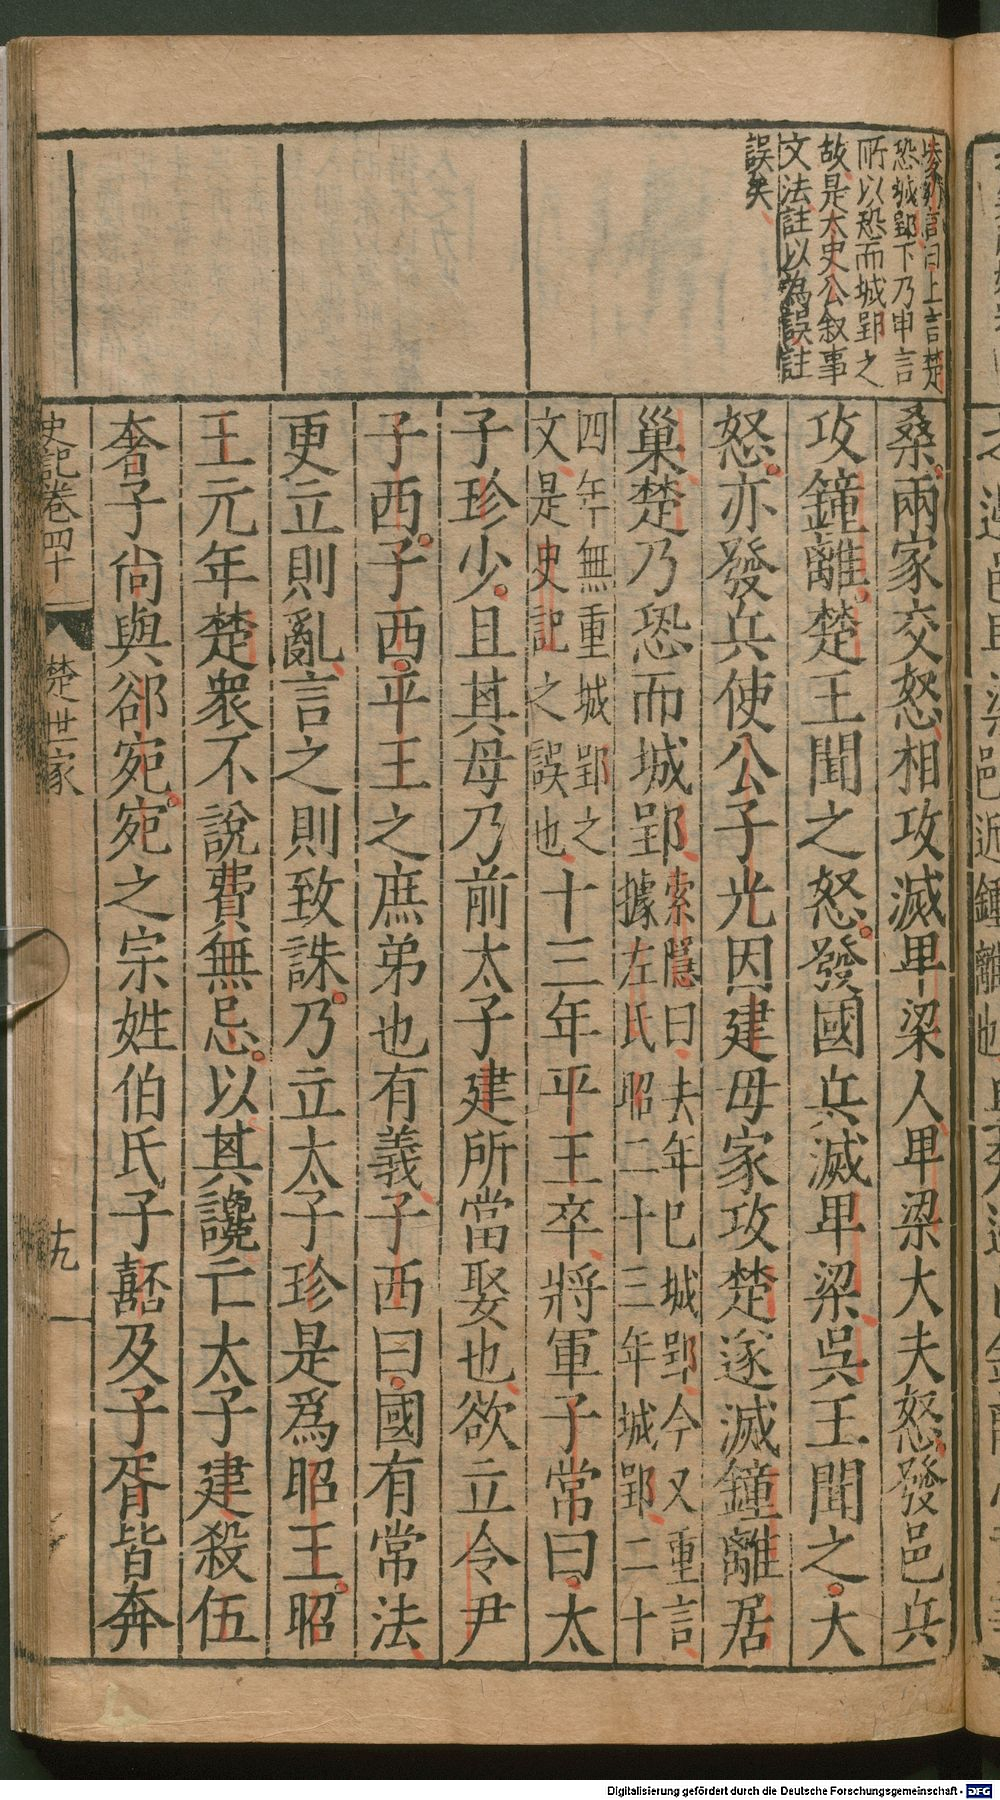 凌約言曰上言楚
恐城郢下乃申言
所以恐而城郢之
故是太史公叙事
文法註以為誤註
誤矣
桑兩家交怒相攻滅卑梁人卑梁大夫怒發邑兵
攻鐘離楚王聞之怒發國兵滅卑梁吳王聞之大
怒亦發兵使公子光因建母家攻楚遂滅鐘離居
巢楚乃恐而城郢
索隱曰去年已城郢今又重言
據左氏昭二十三年城郢二十
四年無重城郢之
文是史記之誤也
十三年平王卒將軍子常曰太
子珍少且其母乃前太子建所當娶也欲立令尹
子西子西平王之庶弟也有義子西曰國有常法
更立則亂言之則致誅乃立太子珍是爲昭王昭
王元年楚衆不說費無忌以其讒亡太子建殺伍
奢子尙與郤宛宛之宗姓伯氏子嚭及子胥皆奔
史記卷四十
楚世家
十九
Digitalisierung gefördert durch die Deutsche Forschungsgemeinschaft - DFG